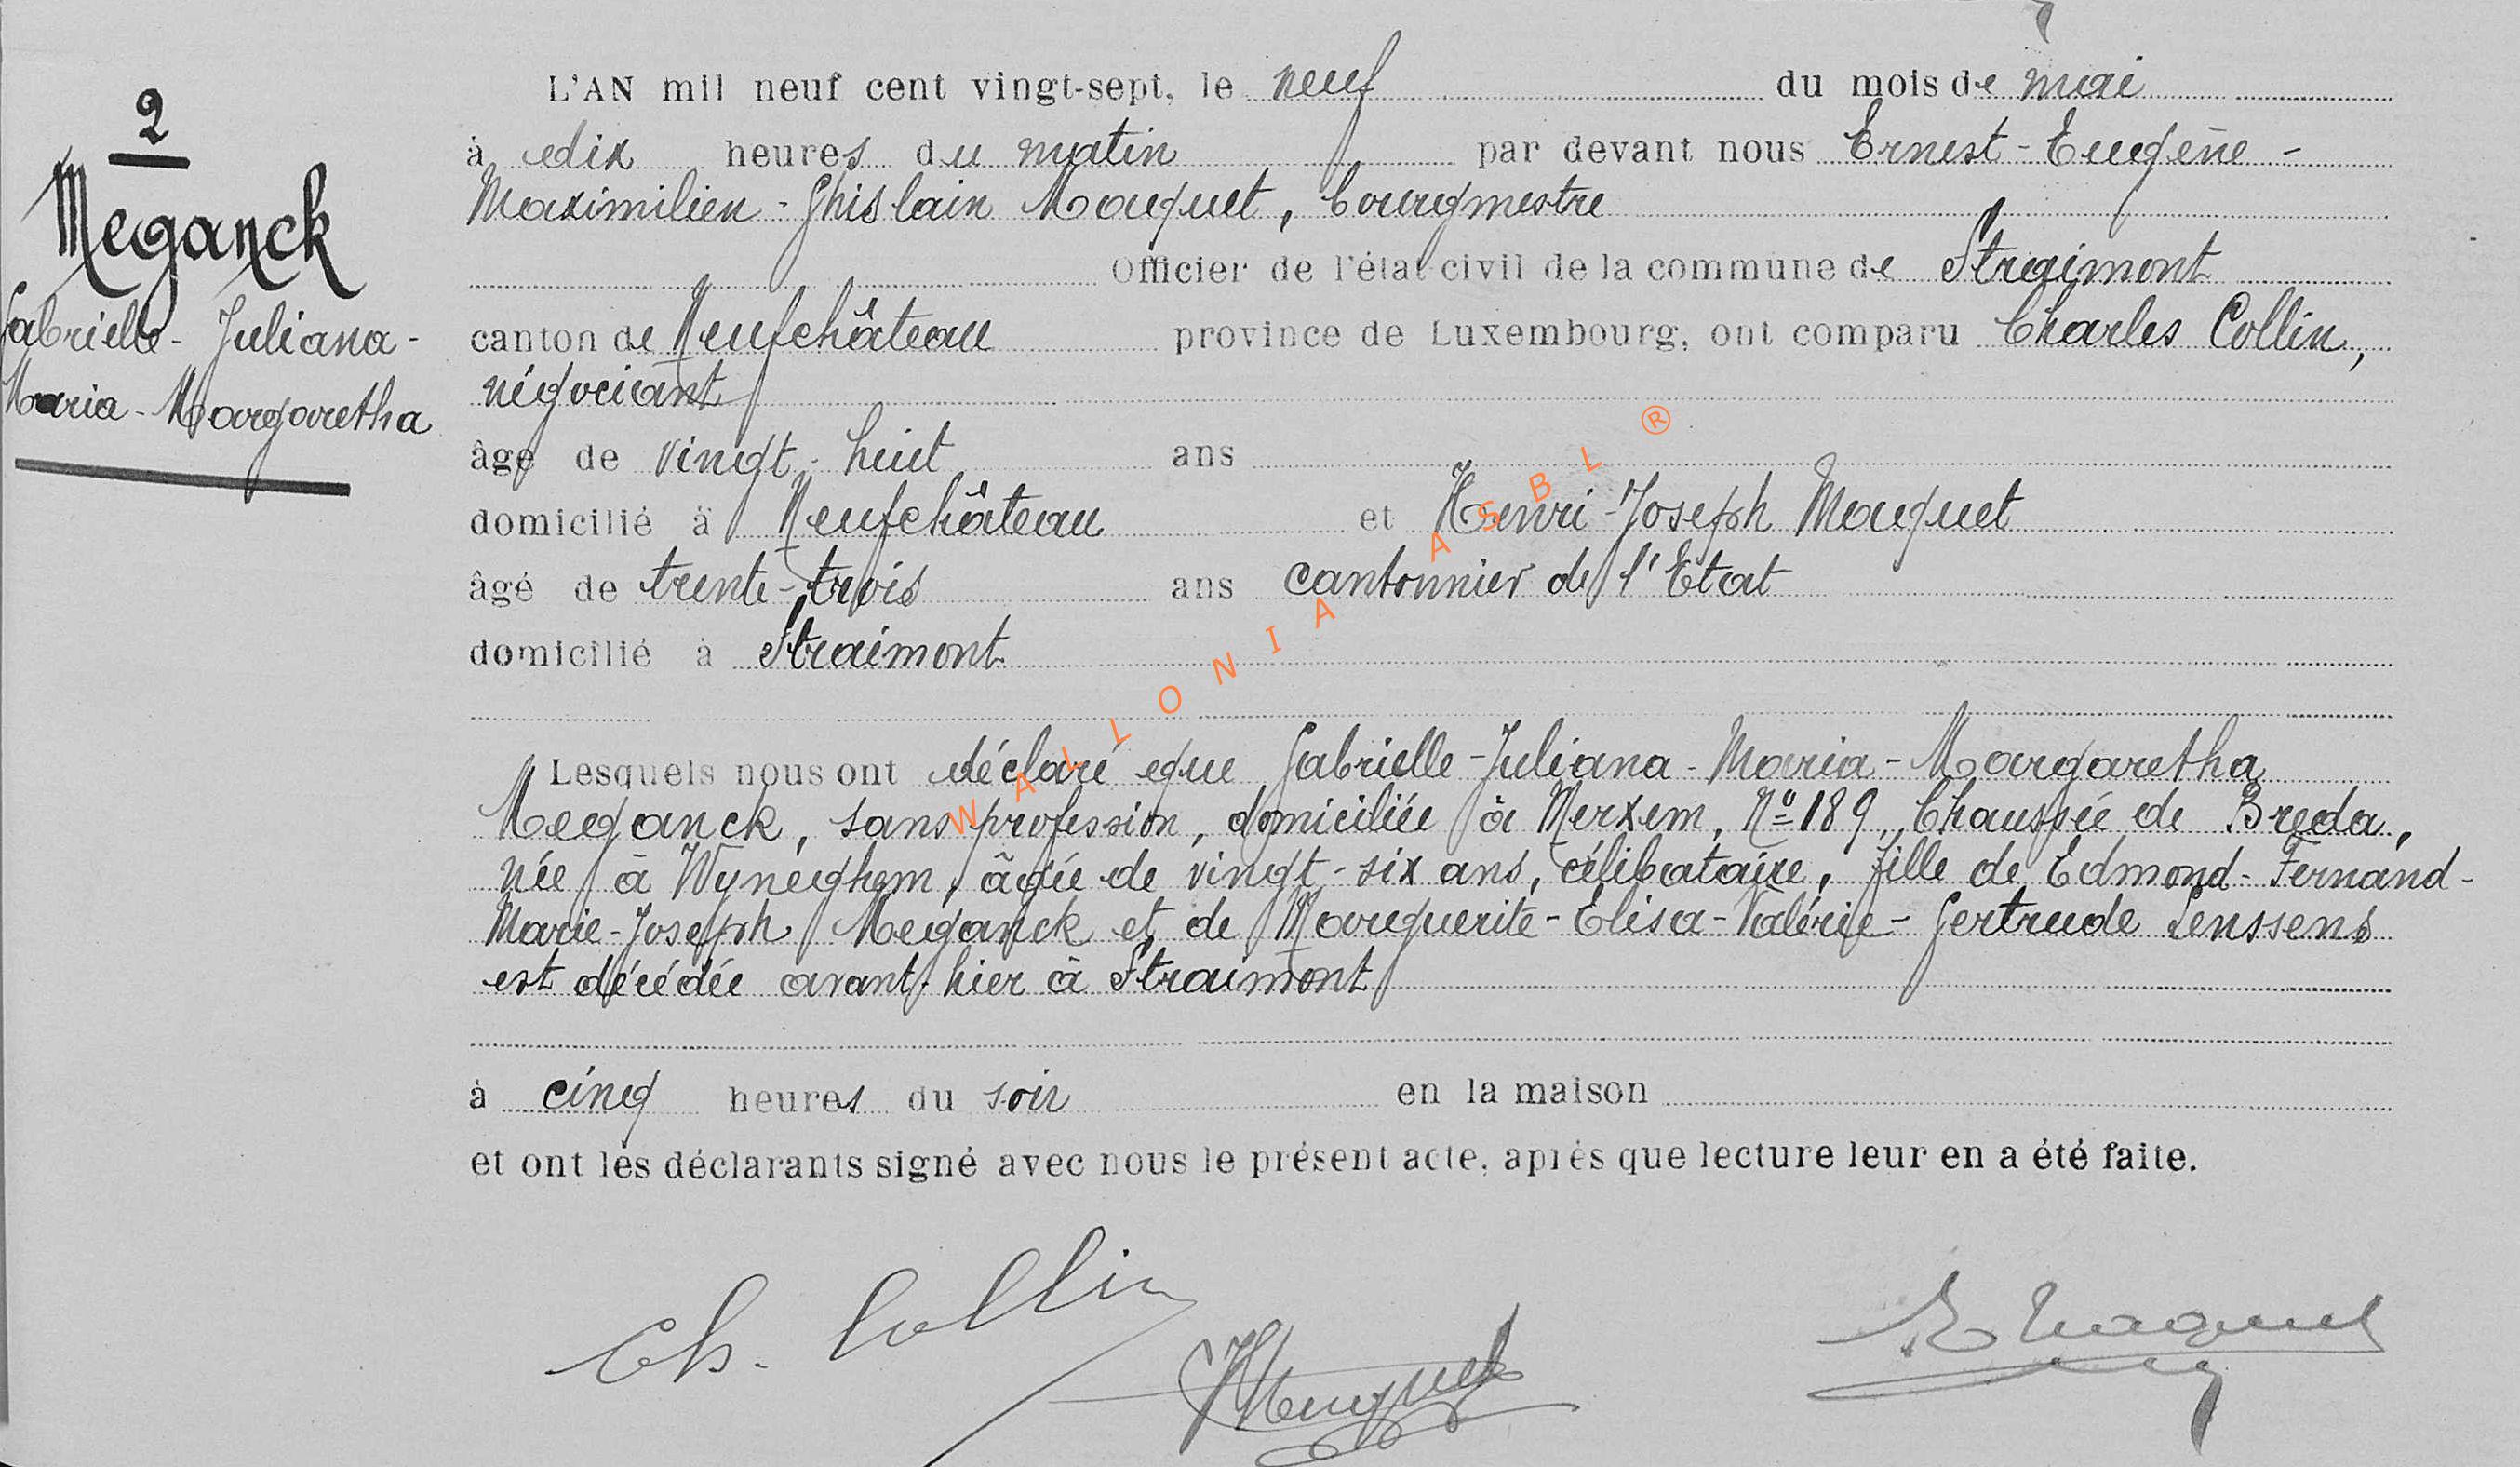 2
Meganck
Gabrielle-Juliana-
Maria-Margaretha
L'AN mil neuf cent vingt-sept, le neuf du mois de mai
à dix heures du matin par devant nous Ernest-Eugène-
Maximilien-Ghislain Maquet, bourgmestre
Officier de l'état civil de la commune de Straimont
canton de Neufchâteau province de Luxembourg, ont comparu Charles Collin,
négociant
âgé de vingt-huit ans
domicilié à Neufchâteau et Henri-Joseph Maquet
âgé de trente-trois ans cantonnier de l'Etat
domicilié à Straimont
Lesquels nous ont déclaré que Gabrielle-Juliana-Maria-Margaretha
Meganck, sans profession, domiciliée à Merxem, No 189, Chaussée de Breda,
née à Wyneghem, âgée de vingt-six ans, célibataire, fille de Edmond-Fernand-
Marie-Joseph Meganck et de Marguerite-Elisa-Valérie-Gertrude Lenssens
est décédée avant-hier à Straimont
à cinq heures du soir en la maison
et ont les déclarants signé avec nous le présent acte, après que lecture leur en a été faite.
Ch. Collin
HMaquet
E Maquet
WALLONIA ASBL ®